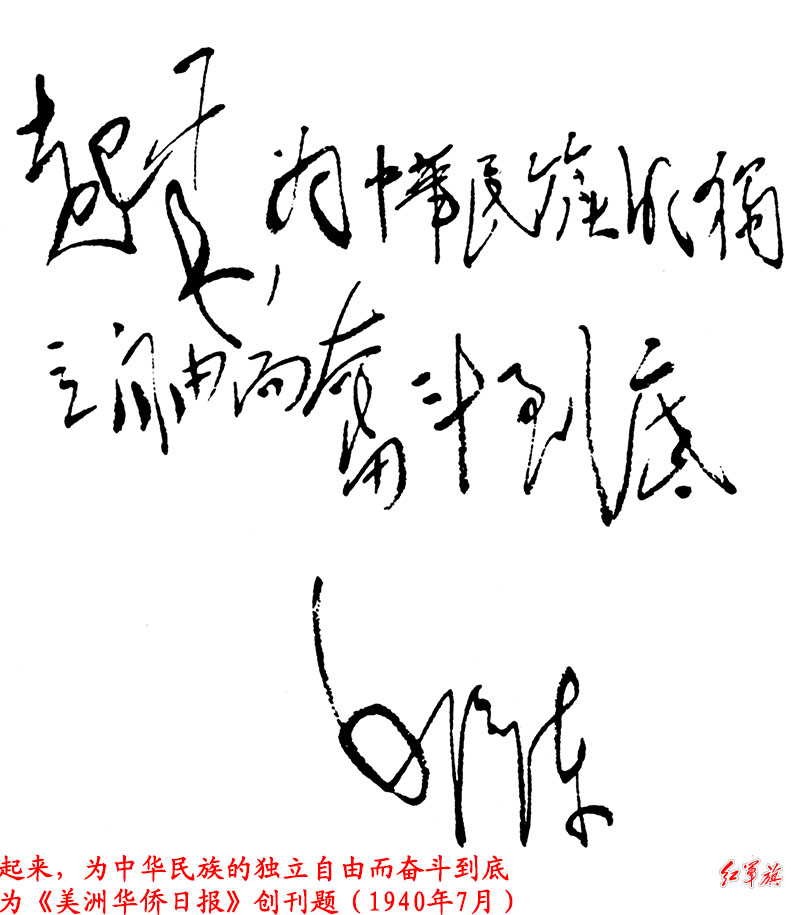 起来，为中華民族的獨
立自由而奮斗到底
毛泽东
起来，为中华民族的独立自由而奋斗到底
为《美洲华侨日报》创刊题（1940年7月）
红军旗